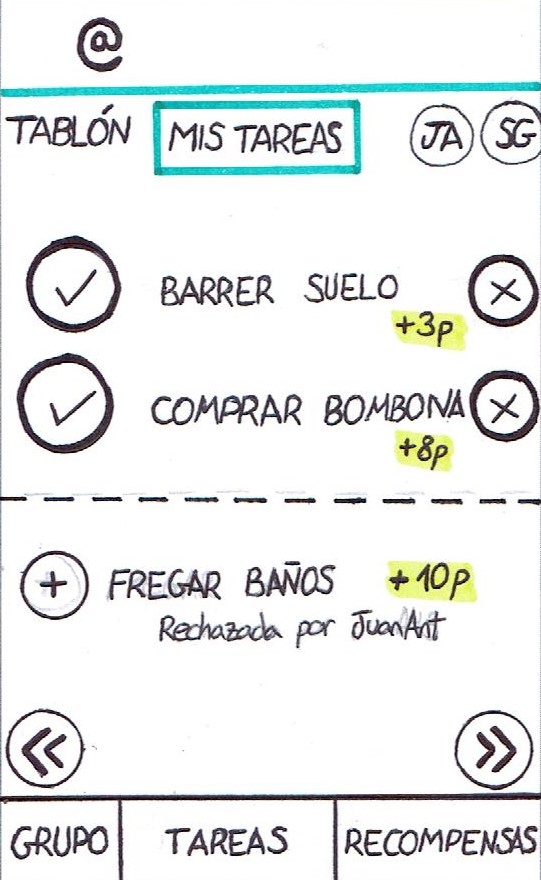 @
TABLÓN MIS TAREAS JA SG
BARRER SUELO
+3p
COMPRAR BOMBONA
+8p
+ FREGAR BAÑOS +10p
Rechazada por JuanAnt
GRUPO TAREAS RECOMPENSAS